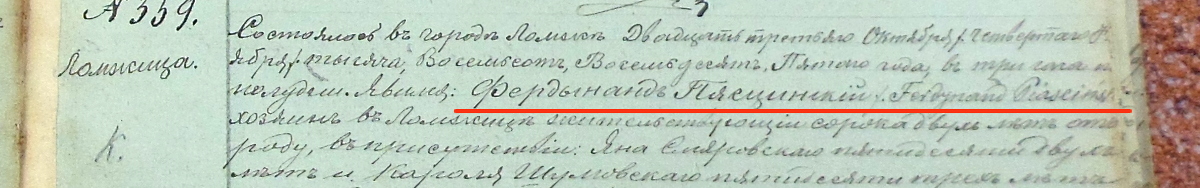 № 559.
Ломжица.
К.
Состоялось въ городѣ Ломжѣ Двадцать третьяго Октября /: Четвертаго Но
ября /: тысяча, Восемьсотъ, Восемьдесятъ, Пятого года, въ три часа по
полудни. Явился: Фердынандъ Пясцинскій /: Ferdynand Piaściński
хозяинъ въ Ломжицѣ жительствующій сорока двухъ лѣтъ отъ
роду, въ присутствіи: Яна Смяровскаго пятидесяти двухъ
лѣтъ и Кароля Шумовскаго пятидесяти трехъ лѣтъ